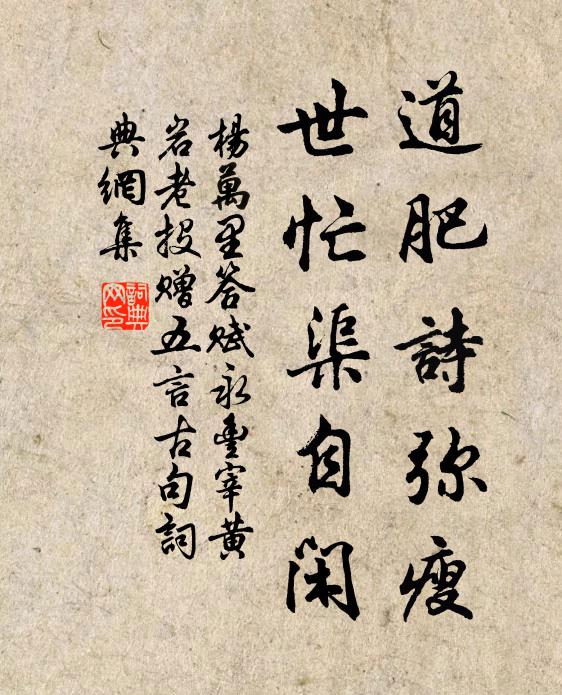 道肥詩弥瘦
世忙渠自閑
楊萬里答賦永豐宰黃
岩老投贈五言古句詞
典網集
詞典
网印